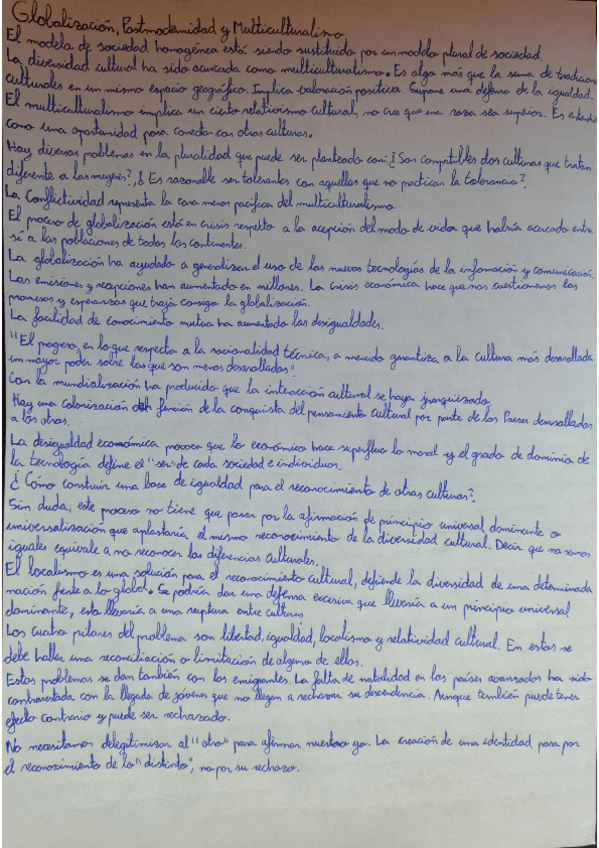 Globalización, Postmodernidad y Multiculturalismo
El modelo de sociedad homogénea está siendo sustituido por un modelo plural de sociedad.
La diversidad cultural ha sido acuñada como multiculturalismo. Es algo más que la suma de tradiciones
culturales en un mismo espacio geográfico. Implica valoración positiva. Supone una defensa de la igualdad.
El multiculturalismo implica un cierto relativismo cultural, no cree que una raza sea superior. Es entendido
como una oportunidad para conectar con otras culturas.
Hay diversos problemas en la pluralidad que puede ser planteado con: ¿Son compatibles dos culturas que tratan
diferente a las mujeres?, ¿Es razonable ser tolerantes con aquellos que no practican la tolerancia?
La Conflictividad representa la cara menos pacífica del multiculturalismo.
El proceso de globalización está en crisis respecto a la acepción del modo de vida que habría acercado entre
sí a las poblaciones de todos los continentes.
La globalización ha ayudado a generalizar el uso de las nuevas tecnologías de la información y comunicación.
Las emisiones y recepciones han aumentado en millones. La crisis económica hace que nos cuestionemos las
promesas y esperanzas que trajo consigo la globalización.
La facilidad de conocimiento mutuo ha aumentado las desigualdades.
"El progreso, en lo que respecta a la racionalidad técnica, a menudo garantiza a la cultura más desarrollada
un mayor poder sobre las que son menos desarrolladas"
Con la mundialización ha producido que la interacción cultural se haya jerarquizado
Hay una colonización función de la conquista del pensamiento cultural por parte de los Países desarrollados
a los otros.
La desigualdad económica provoca que lo económico hace superfluo lo moral y el grado de dominio de
la tecnología define el "ser" de cada sociedad e individuos.
¿Cómo construir una base de igualdad para el reconocimiento de otras culturas?
Sin duda, este proceso no tiene que pasar por la afirmación de principio universal dominante o
universalización que aplastaría el mismo reconocimiento de la diversidad cultural. Decir que no somos
iguales equivale a no reconocer las diferencias Culturales.
El localismo es una solución para el reconocimiento cultural, defiende la diversidad de una determinada
nación frente a lo global. Se podría dar una defensa excesiva que llevaría a un principio universal
dominante, esto llevaría a una ruptura entre culturas
Los cuatro pilares del problema son libertad, igualdad, localismo y relatividad cultural. En estos se
debe hallar una reconciliación o limitación de alguno de ellos.
Estos problemas se dan también con los emigrantes. La falta de natalidad en los países avanzados ha sido
contrarrestada con la llegada de jóvenes que no llegan a rechazar su descendencia. Aunque también puede tener
efecto contrario y puede ser rechazado.
No necesitamos delegitimizar al "otro" para afirmar nuestro yo. La creación de una identidad pasa por
el reconocimiento de lo "distinto", no por su rechazo.